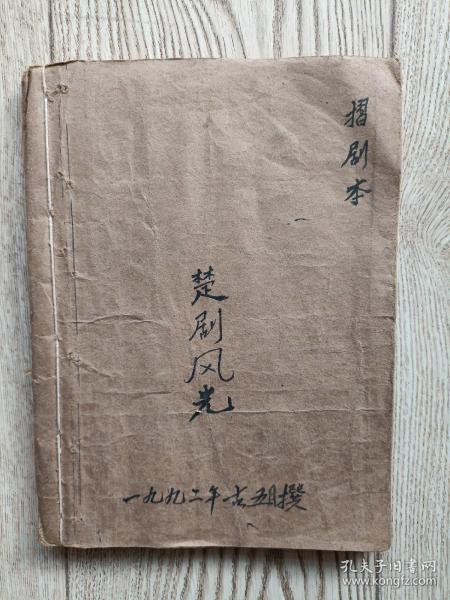 摺剧本
楚剧风光
一九九二年古五月撰
孔夫子旧书网
www.kongfz.com